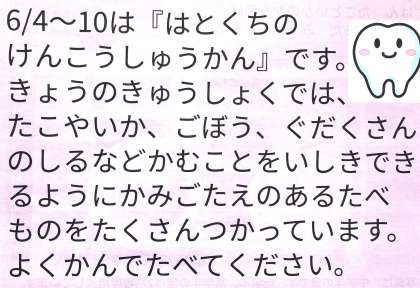 6/4～10は『はとくちの
けんこうしゅうかん』です。
きょうのきゅうしょくでは、
たこやいか、ごぼう、ぐだくさん
のしるなどかむことをいしきでき
るようにかみごたえのあるたべ
ものをたくさんつかっています。
よくかんでたべてください。